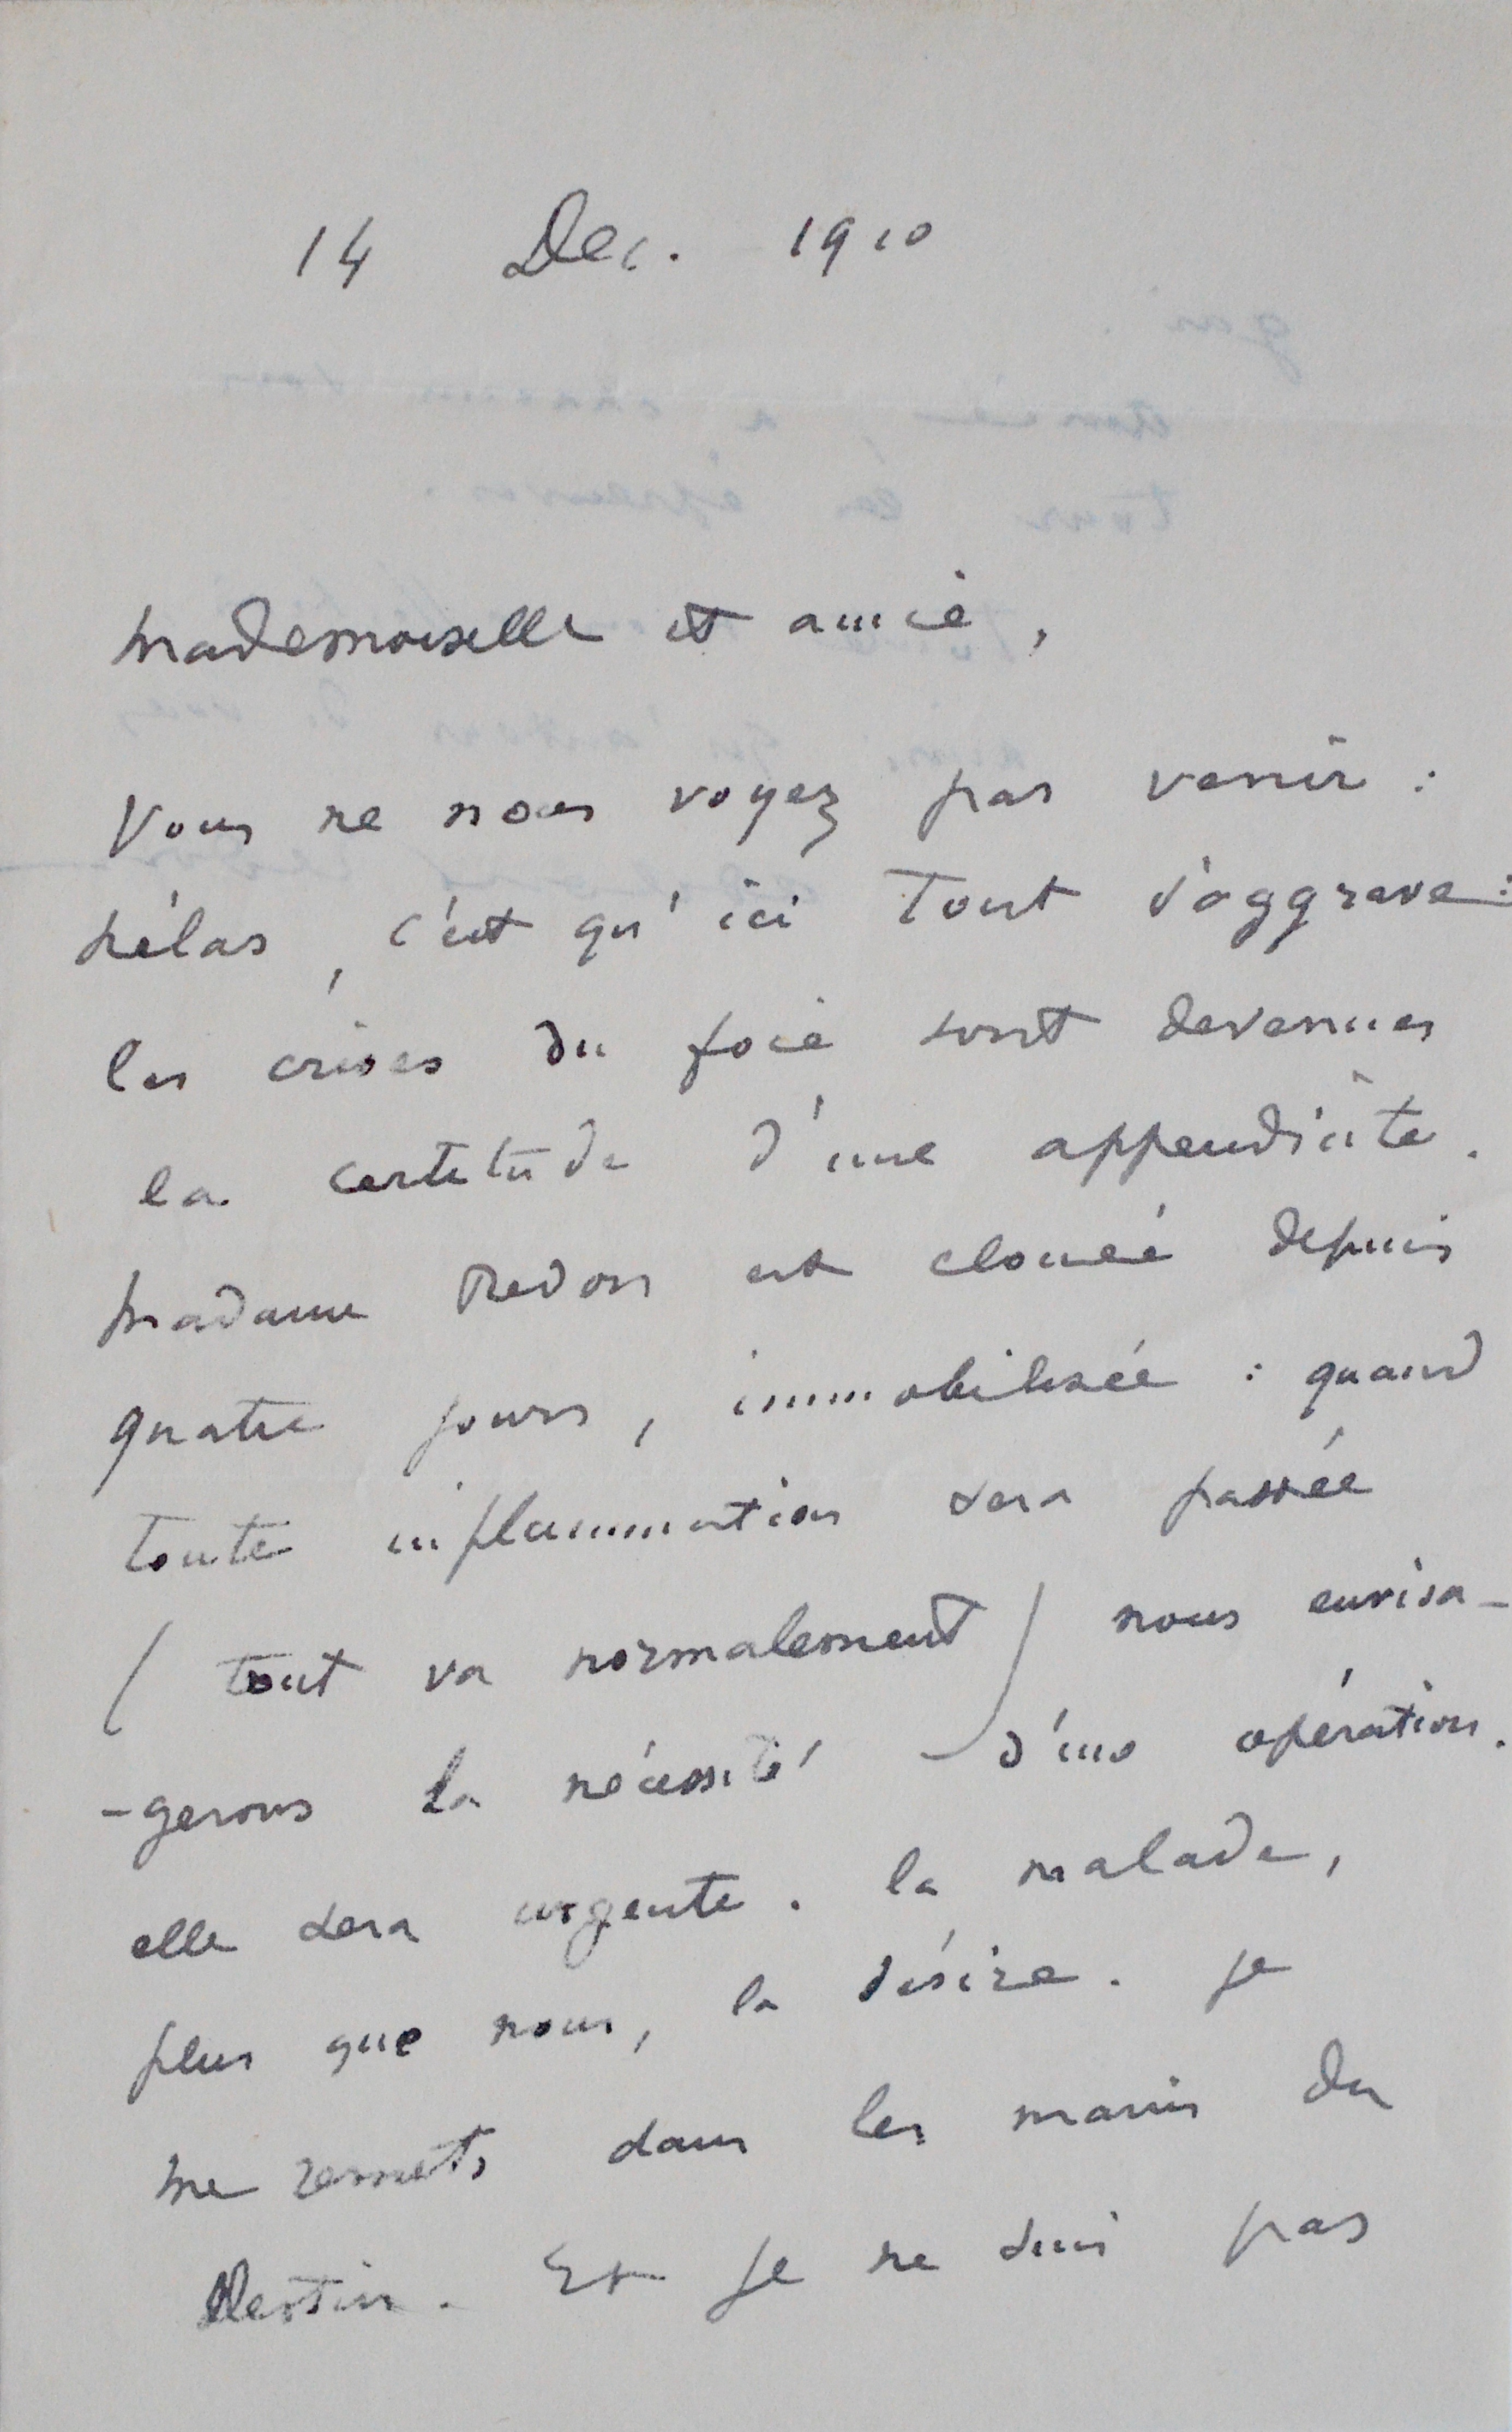 14 Dec. 1910
Mademoiselle et amie,
Vous ne nous voyez pas venir :
hélas, c'est qu'ici tout s'aggrave :
les crises du foie sont devenues
la certitude d'une appendicite.
Madame Redon est clouée depuis
quatre jours, immobilisée : quand
toute inflammation sera passée
(tout va normalement) nous envisa-
-gerons la nécessité d'une opération.
elle sera urgente. la malade,
plus que nous, la désire. Je
me remets dans les mains du
Destin. Et je ne suis pas